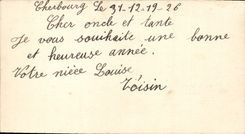 Cherbourg le 31-12-1926
Cher oncle et tante
Je vous souhaite une bonne
et heureuse année.
Votre nièce Louise
Voisin